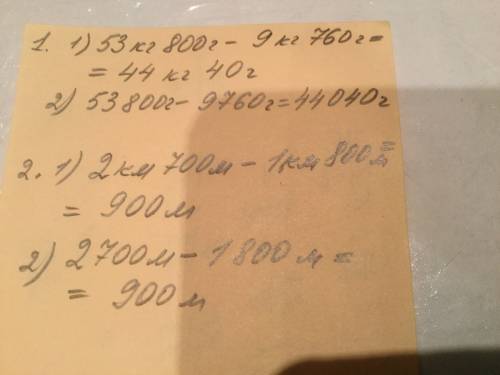 1. 1) 53 кг 800г - 9 кг 760г =
= 44 кг 40г
2) 53800г - 9760г = 44040г
2. 1) 2 км 700м - 1 км 800м =
= 900м
2) 2700м - 1800м =
= 900м